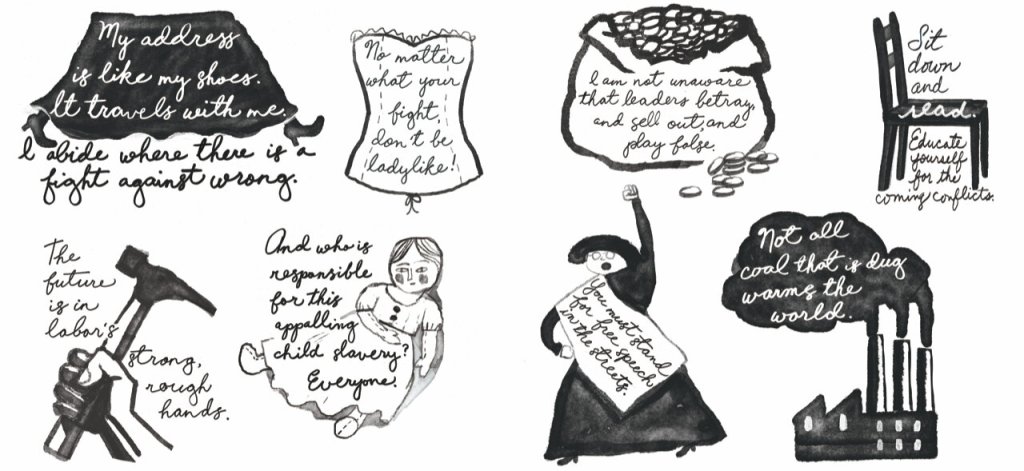 My address
is like my shoes.
It travels with me.
I abide where there is a
fight against wrong.
No matter
what your
fight
don't be
ladylike!
I am not unaware
that leaders betray,
and sell out, and
play false.
Sit
down
and
read.
Educate
yourself
for the
coming conflicts.
The
future
is in
labor's
strong,
rough
hands.
And who is
responsible
for this
appalling
child slavery?
Everyone.
You must stand
for free speech
in the streets.
Not all
coal that is dug
warms the
world.